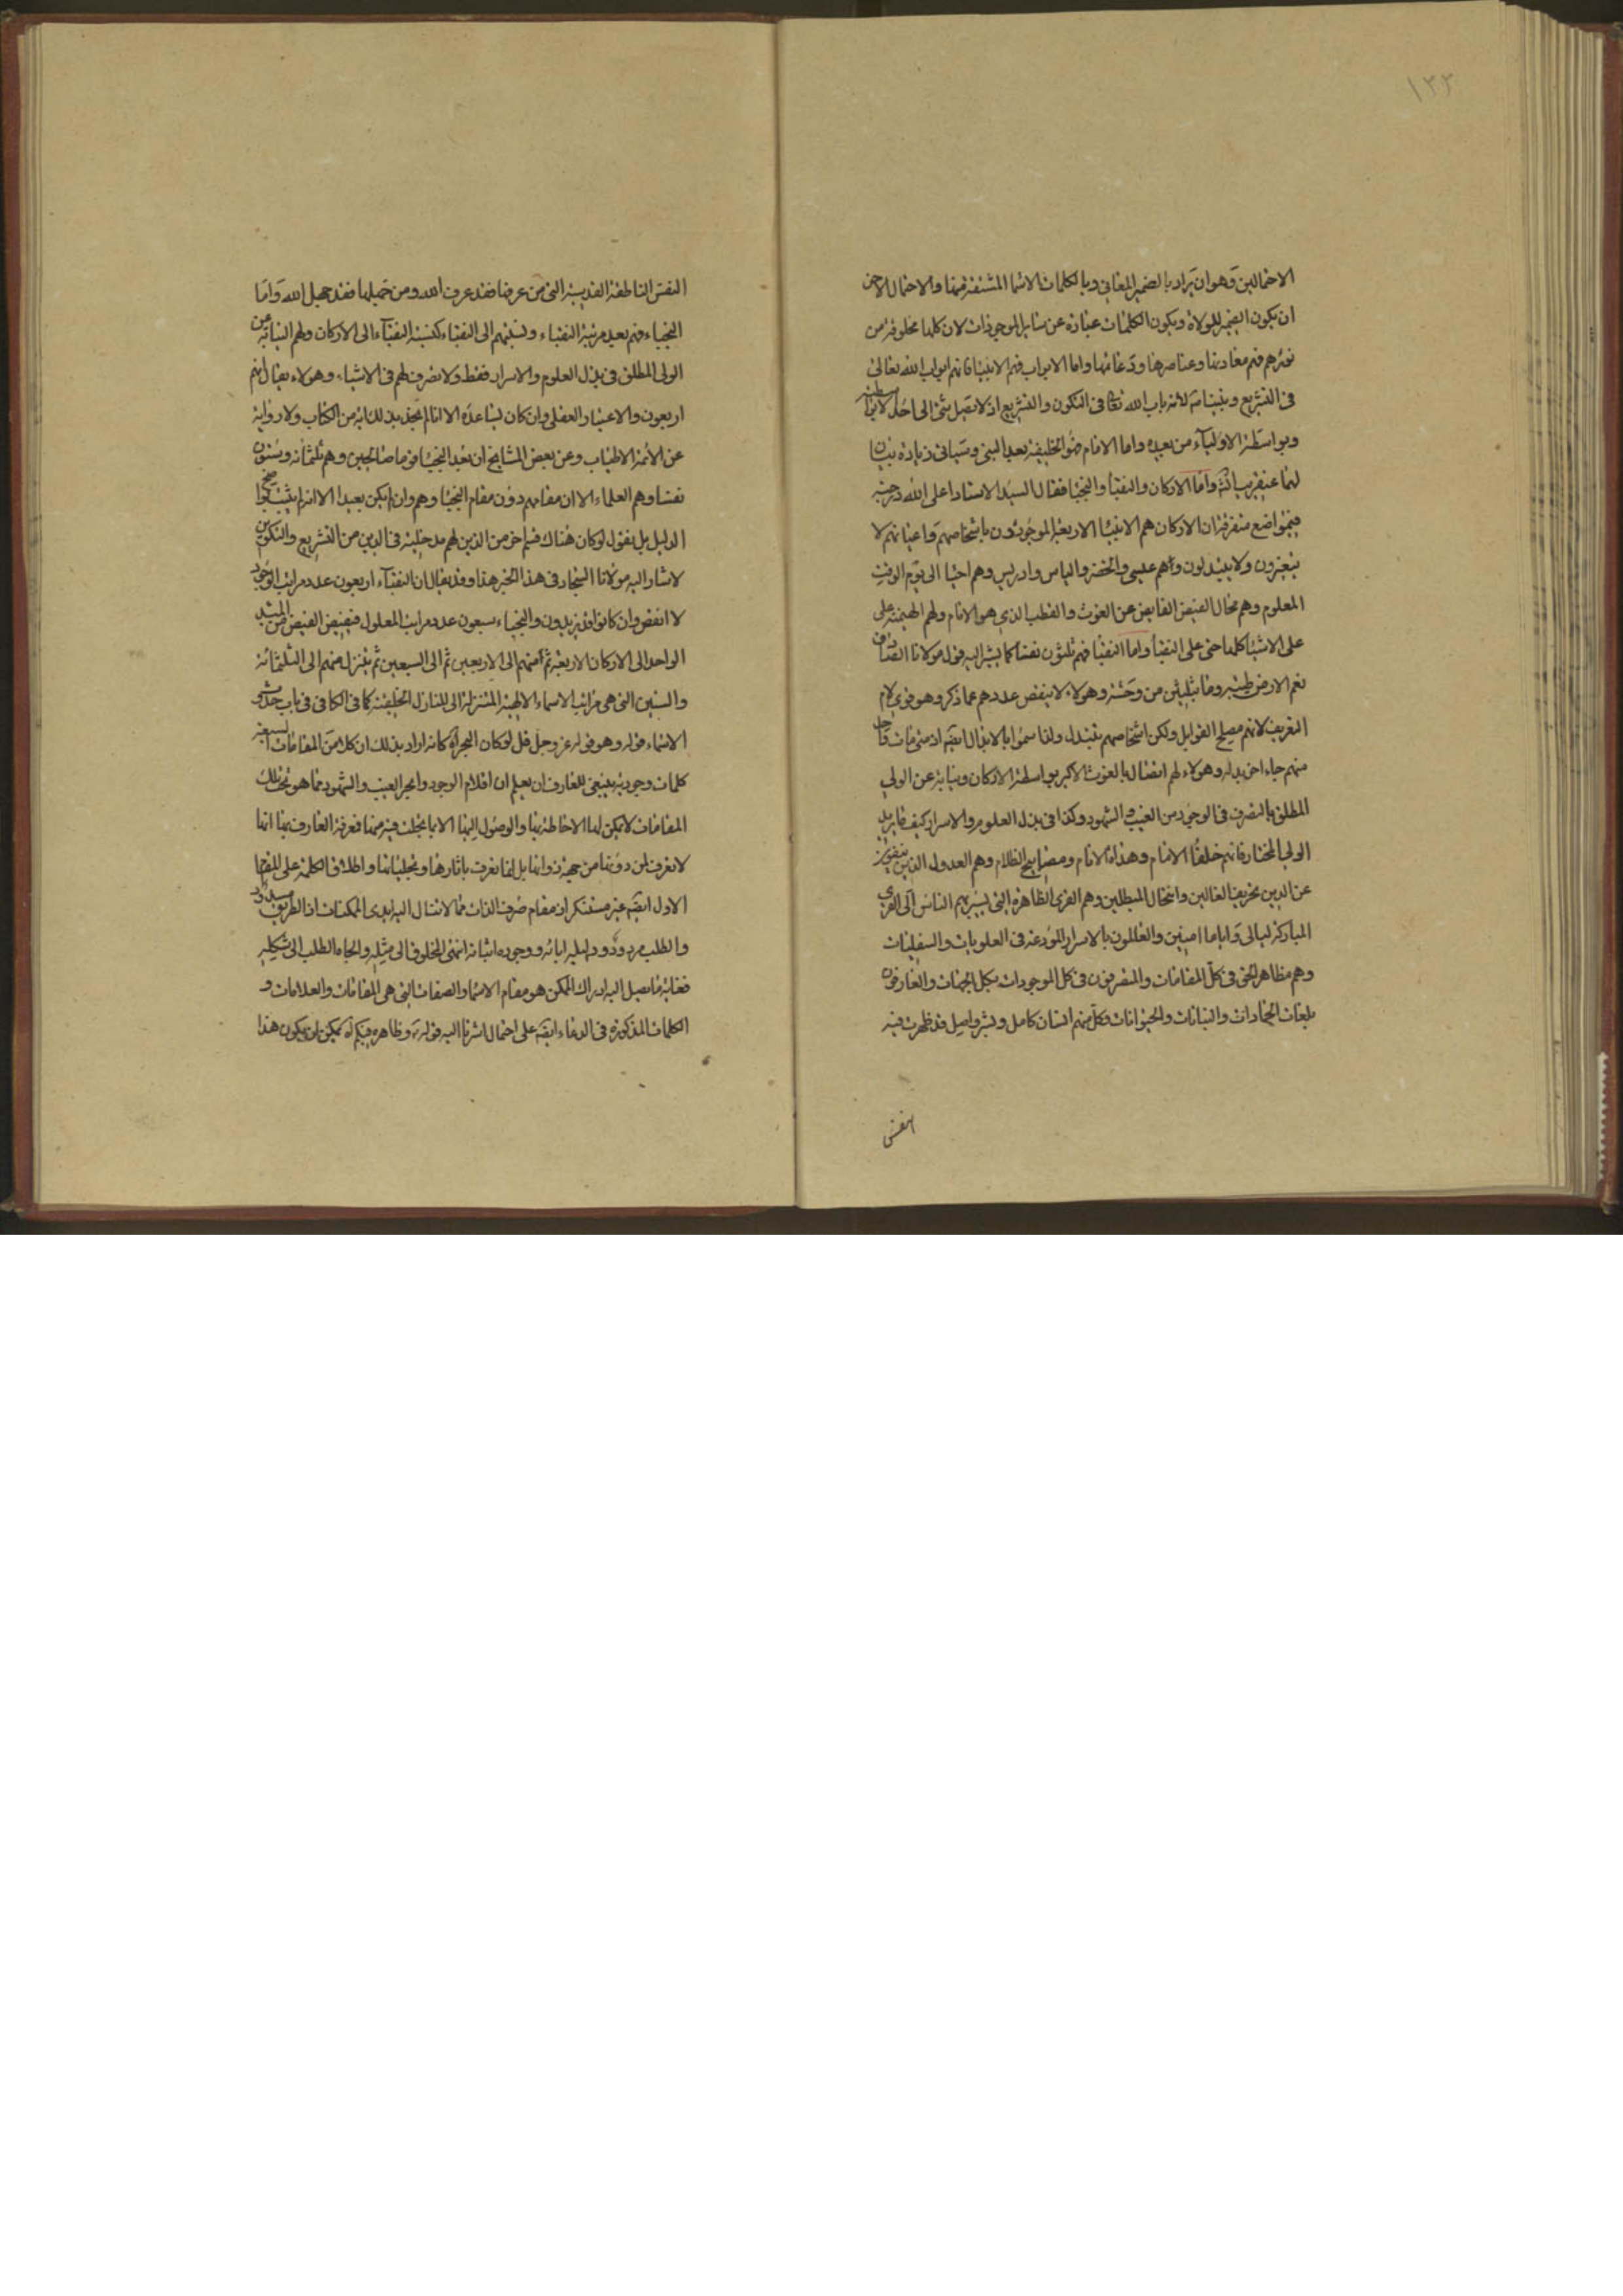 ١٣٢
الاحتمالين وهو ان يراد بالضمير المعاني وبالكلمات الاسما المشتقة منها والاحتمال الاخر
ان يكون الضمير للولاة ويكون الكلمات عبارة عن سائر الموجودات لان كلها مخلوقة من
نورهم فهم معادنها وعناصرها ودعائمها واما الابواب فهم الانبيا فانهم ابواب الله تعالى
في التشريع ونبينا لانه باب الله في التكوين والتشريع اذ لا يصل شئ الى احد الا بواسطته
وبواسطة الاولياء من بعده واما الامام فهو الخليفة بعد النبي وسياتي زيادة بيان
لهما عنقريب واما الاركان والنقبا والنجبا فقال السيد الاستاد اعلى الله درجته
في مواضع متفرقة ان الاركان هم الانبيا الاربعة الموجودون باشخاصهم واعيانهم لا
يتغيرون ولا يتبدلون وهم عيسى والخضر والياس وادريس وهم احيا الى يوم الوقت
المعلوم وهم محال الفيض الفايض عن الغوث والقطب الذي هو الامام ولهم الهيمنة على
على الاشيا كلها حتى على النقبا واما النقبا فهم ثلثون نفسا كما يشير اليه قول مولانا الصادق
نعم الارض طيبة وما بثلثين من وحشة وهولاء لا ينقص عددهم عما ذكر وهو قوى لام
التعريف لانهم مصلح القوابل ولكن اشخاصهم تتبدل ولذا سموا بالابدال ايضه اذ متى مات واحد
منهم جاء اخر بدله وهولاء لهم اتصال بالغوث الاكبر بواسطة الاركان ونيابة عن الولي
المطلق بالتصرف في الوجود من الغيب والشهود وكذا في بذل العلوم والاسرار كيف ما يريد
الولي المختار فانهم خلفا الامام وهداة الانام ومصابيح الظلام وهم العدول الذين ينفون
عن الدين تحريف الغالين وانتحال المبطلين وهم القرى الظاهرة التي يسير بهم الناس الى القرى
المباركة ليالى واياما امنين والعالمون بالاسرار المودعة في العلويات والسفليات
وهم مظاهر الحق في كل المقامات والمتصرفون في كل الموجودات بكل الجهات والعارفون
بلغات الجمادات والنباتات والحيوانات فكل منهم انسان كامل وبشر واصل قد ظهرت فيه
النفس
النفس الناطقة القدسية التي من عرفها فقد عرف الله ومن جهلها فقد جهل الله واما
النجباء فهم بعد مرتبة النقباء ونسبتهم الى النقباء كنسبة النقباء الى الاركان ولهم النيابة عن
الولى المطلق في بذل العلوم والاسرار فقط ولا تصرف لهم في الاشياء وهولاء يقال انهم
اربعون والاعتبار العقلي وان كان يساعده الا انا لم نجد بذلك اية من الكتاب ولا رواية
عن الائمة الاطياب وعن بعض المشايخ ان بعد النجبا قوما صالحين وهم ثلثمائة وستون
نفسا وهم العلماء الا ان مقامهم دون مقام النجبا وهم وان لم يكن بعيدا الا انه لم يثبت
الدليل بل نقول لو كان هناك قسم اخر من الذين لهم مدخلية في الدين من التشريع والتكوين
لاشار اليه مولانا السجاد في هذا الخبر هذا وقد يقال ان النقباء اربعون عدد مراتب الوجود
لا انقص وان كانوا قد يزيدون والنجباء سبعون عدد مراتب المعلول فيفيض الفيض من المبدء
الواحد الى الاركان الاربعة ثم منهم الى الاربعين ثم الى السبعين ثم يتنزل منهم الى الثلثمائة
والستين التي هي مراتب الاسماء الالهية المتنزلة الى المنازل الخلقية كما في الكافي في باب حدوث
الاسماء قوله وهو قوله عز وجل قل لو كان البحر اه كانه اراد بذلك ان كلا من المقامات السبعة
كلمات وجودية ينبغي للعارف ان يعلم ان اقلام الوجود وابحر الغيب والشهود مما هو تحت تلك
المقامات لا يمكن لها الاحاطة بها والوصول اليها الا بما تجلت فيه منها فمعرفة العارف بها انها
لا تعرف لمن دونها من جهة ذواتها بل انما تعرف باثارها وتجلياتها واطلاق الكلمة على المقام
الاول ايضه غير مستنكر اذ مقام صرف الذات مما لا تنال اليه ايدي الممكنات اذ الطريق مسدود
والطلب مردود ودليله اياته ووجوده اثباته انتهى المخلوق الى مثله والجاه الطلب الى شكله
فغاية ما يصل اليه ادراك الممكن هو مقام الاسما والصفات التي هي المقامات والعلامات و
الكلمات المذكورة في الدعاء ايضه على احتمال اشرنا اليه قوله وظاهره فيكم اه يمكن ان يكون هذا